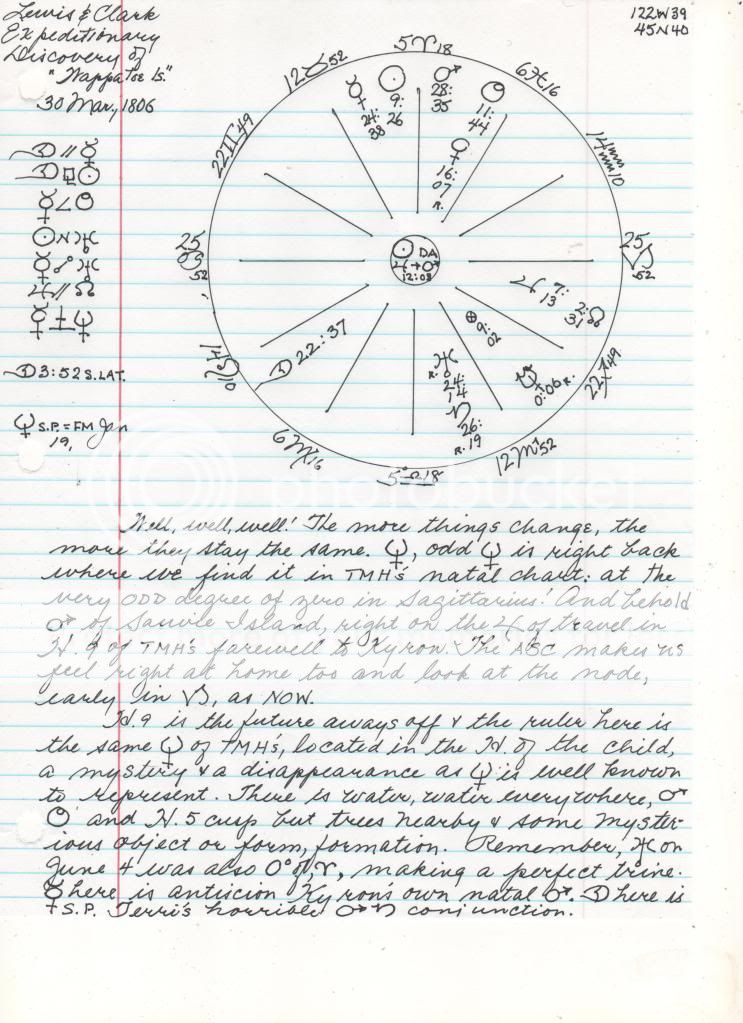 Lewis & Clark
Expeditionary
Discovery of
"Wappatoe Is."
30 Mar, 1806
122W39
45N40
☽ // ☿
☽ ⚼ ☉
☿ ∠
☉ ♅
☿ ☍ ♅
♃ // ☊
☿ ♆
☽ 3:52 S. LAT.
♆ S.P. = FM Jan
19,
5 ♈ 18
6 ♓ 16
14 ♒ 10
25 ♑ 52
22 ♐ 49
12 ♏ 52
5 ♎ 18
6 ♍ 16
14 ♌ 10
25 ♋ 52
22 ♊ 49
12 ♉ 52
☿ 24: 38
☉ 9: 26
♂ 28: 35
11: 44
♀ 16: 07 R.
☉ DA
♃ → ♂
12:08
♃ 7: 13
2: 31 ☊
⊗ 9: 02
♆ 0:06 R.
♅ R. 24: 14
♄ 26: R. 19
☽ 22:37
photobucket
Well, well, well! The more things change, the
more they stay the same. ♆, odd ♆ is right back
where we find it in TMH's natal chart: at the
very ODD degree of zero in Sagittarius! And behold
♂ of Sauvie Island, right on the ♃ of travel in
H. 9 of TMH's farewell to Kyron. The ASC makes us
feel right at home too and look at the node,
early in ♑, as NOW.
H. 9 is the future aways off & the ruler here is
the same ♆ of TMH's, located in the H. of the child,
a mystery & a disappearance as ♆ is well known
to represent. There is water, water everywhere, ♂
and H. 5 cusp but trees nearby & some myster-
ious object or form, formation. Remember, ♅ on
June 4 was also 0° of ♈, making a perfect trine.
☿ here is antiscion Kyron's own natal ♂. ☽ here is
S.P. Terri's horrible ♂ ♄ conjunction.